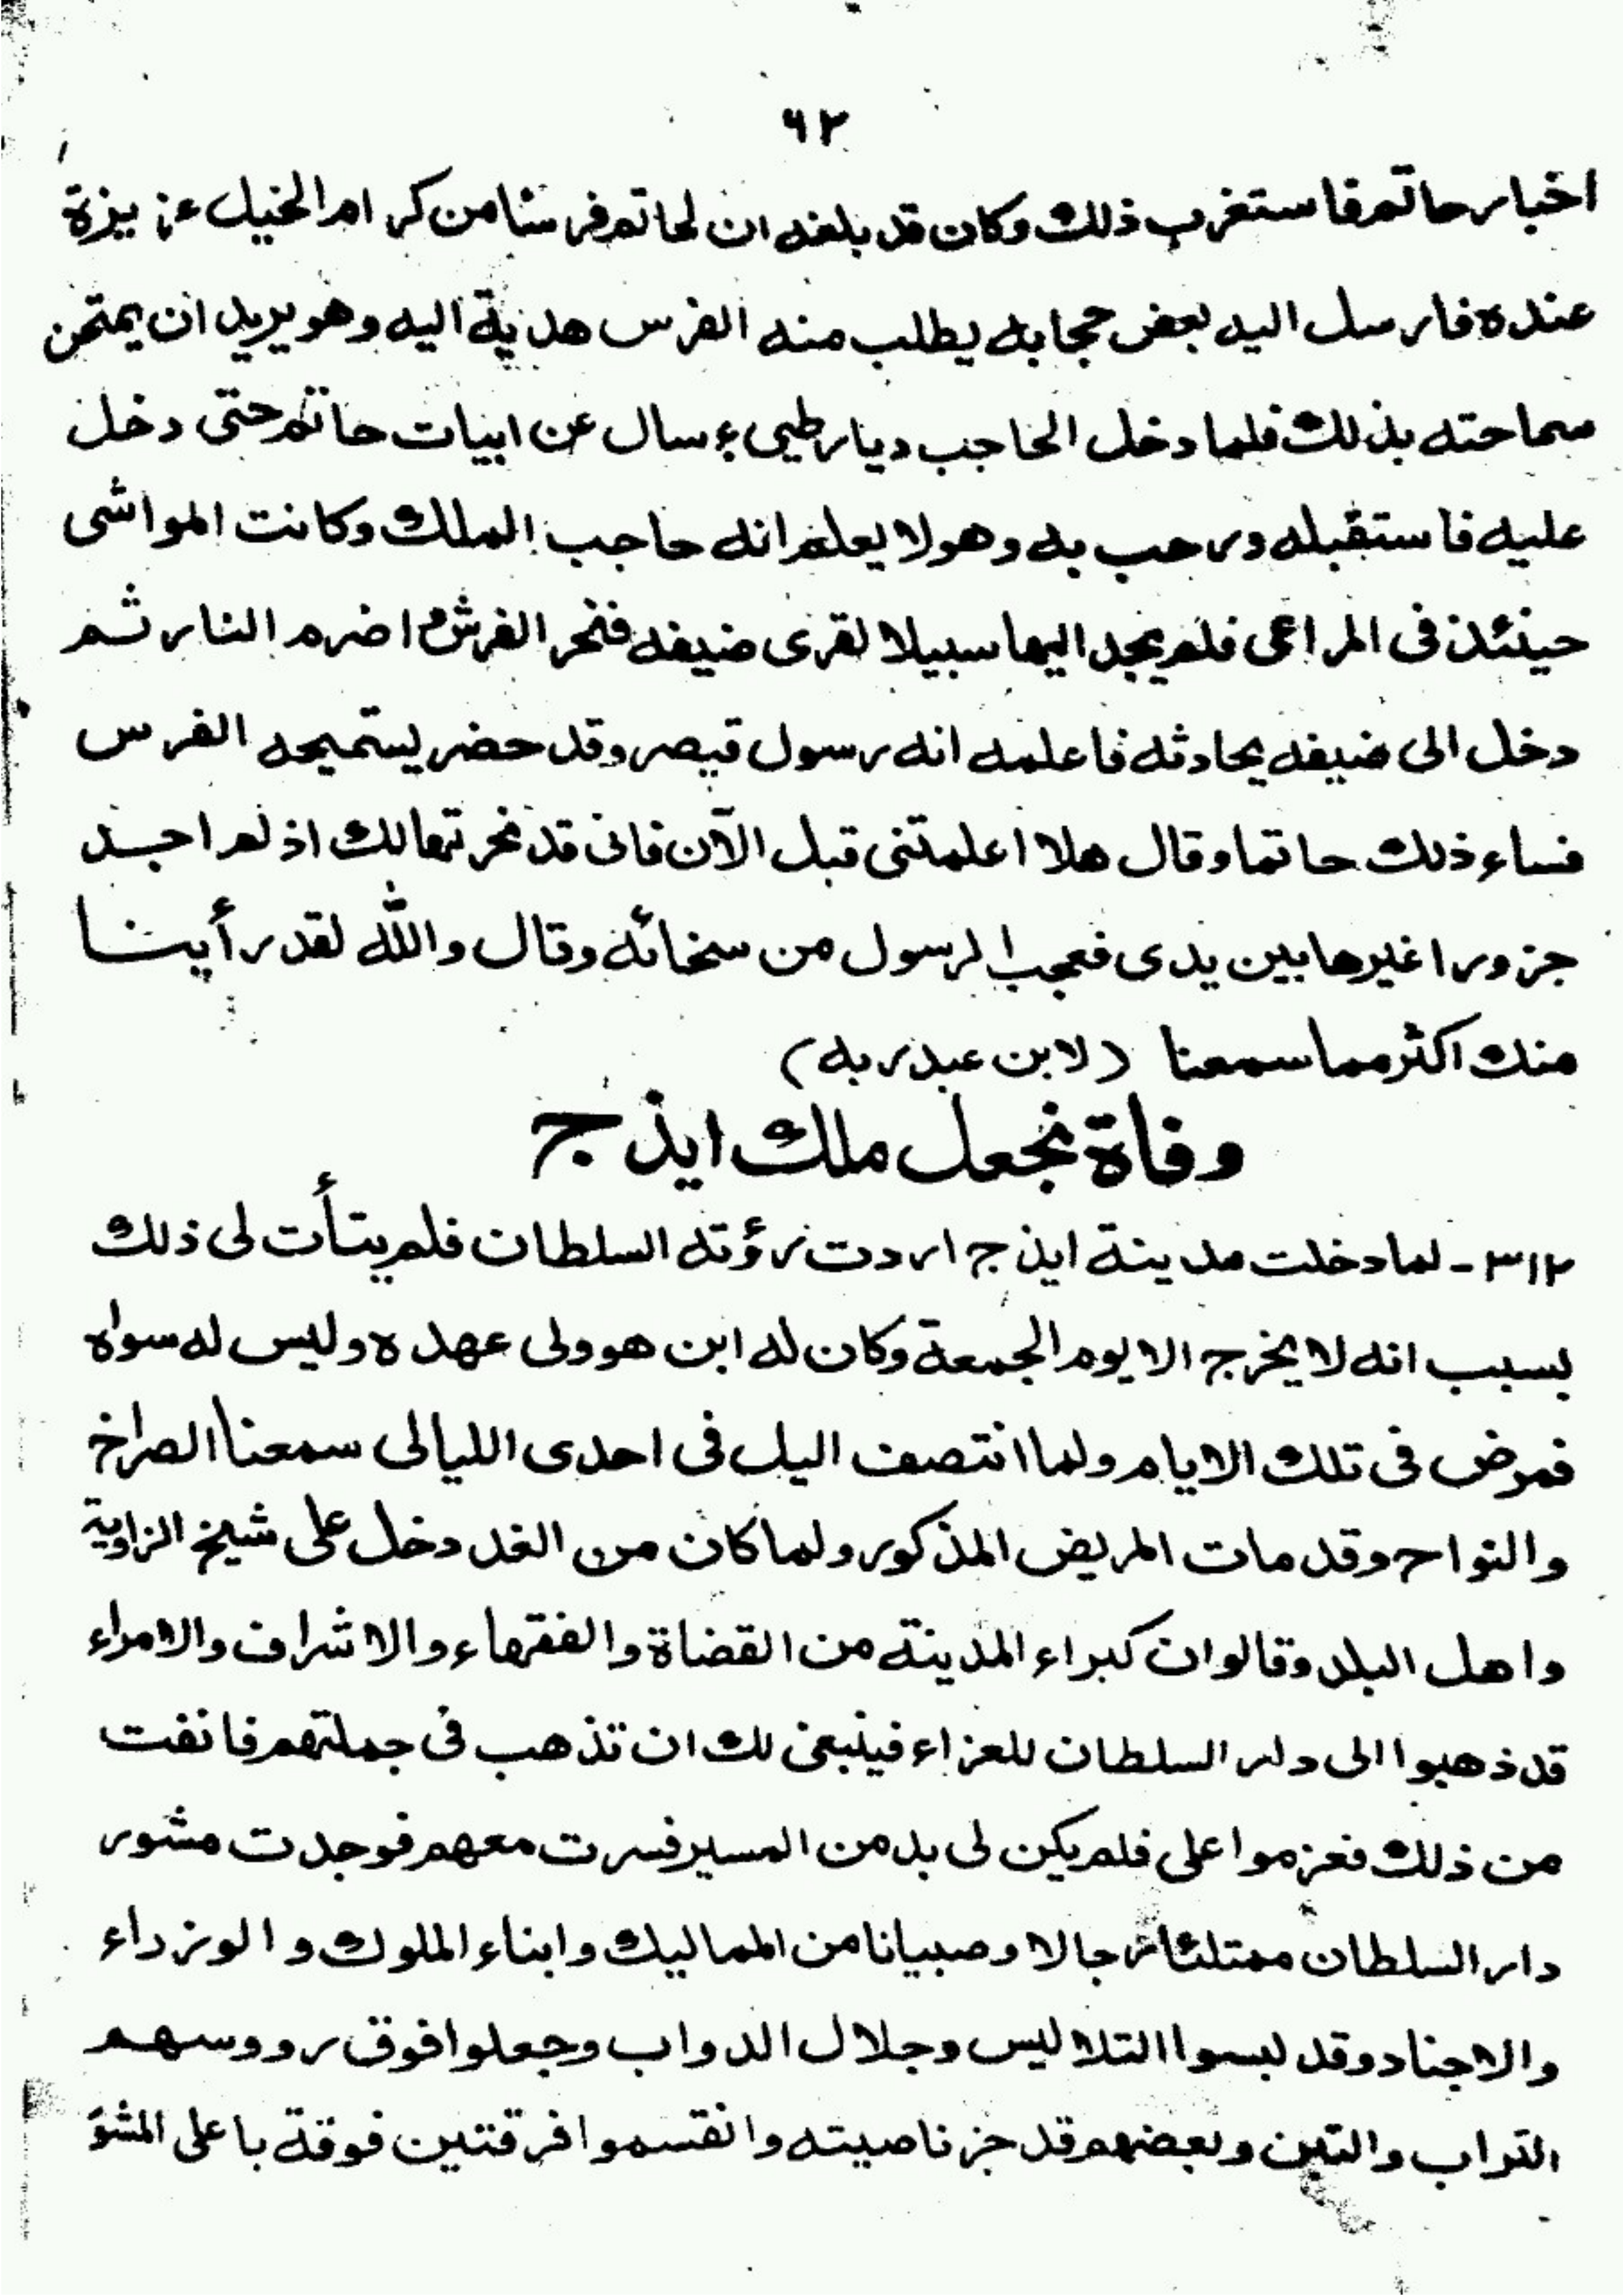 ٦٢
اخبار حاتم فاستغرب ذلك وكان قد بلغه ان لحاتم فرسنا من كرام الخيل عزيزة
عنده فارسل اليه بعض حجابه يطلب منه الفرس هدية اليه وهو يريد ان يمتحن
سماحته بذلك فلما دخل الحاجب ديار طيىء سال عن ابيات حاتم حتى دخل
عليه فاستقبله ورحب به وهو لا يعلم انه حاجب الملك وكانت المواشى
حينئذ فى المراعى فلم يجد اليها سبيلا لقرى ضيفه فنحر الفرس واضرم النار ثم
دخل الى ضيفه يحادثه فاعلمه انه رسول قيصر وقد حضر يستميحه الفرس
فساء ذلك حاتما وقال هلا اعلمتنى قبل الآن فانى قد نحرتها لك اذ لم اجد
جزورا غيرها بين يدى فعجب الرسول من سخائه وقال والله لقد رأينا
منك اكثر مما سمعنا (لابن عبدربه)
وفاة نجعل ملك ايذج
٣١٢ - لما دخلت مدينة ايذج اردت رؤته السلطان فلم يتأت لى ذلك
بسبب انه لا يخرج الا يوم الجمعة وكان له ابن هو ولى عهده وليس له سواه
فمرض فى تلك الايام ولما انتصف اليل فى احدى الليالى سمعنا الصراخ
والنواح وقد مات المريض المذكور ولما كان من الغد دخل على شيخ الزاوية
واهل البلد وقالوان كبراء المدينة من القضاة والفقهاء والاشراف والامراء
قد ذهبوا الى دار السلطان للعزاء فينبغى لك ان تذهب فى جملتهم فانفت
من ذلك فعزموا على فلم يكن لى بد من المسير فسرت معهم فوجدت مشور
دار السلطان ممتلئا رجالا وصبيانا من المماليك وابناء الملوك والوزراء
والاجناد وقد لبسوا التلاليس وجلال الدواب وجعلوا فوق رووسهم
التراب والتبن وبعضهم قد جز ناصيته وانقسموا فرقتين فوقة باعلى المشو